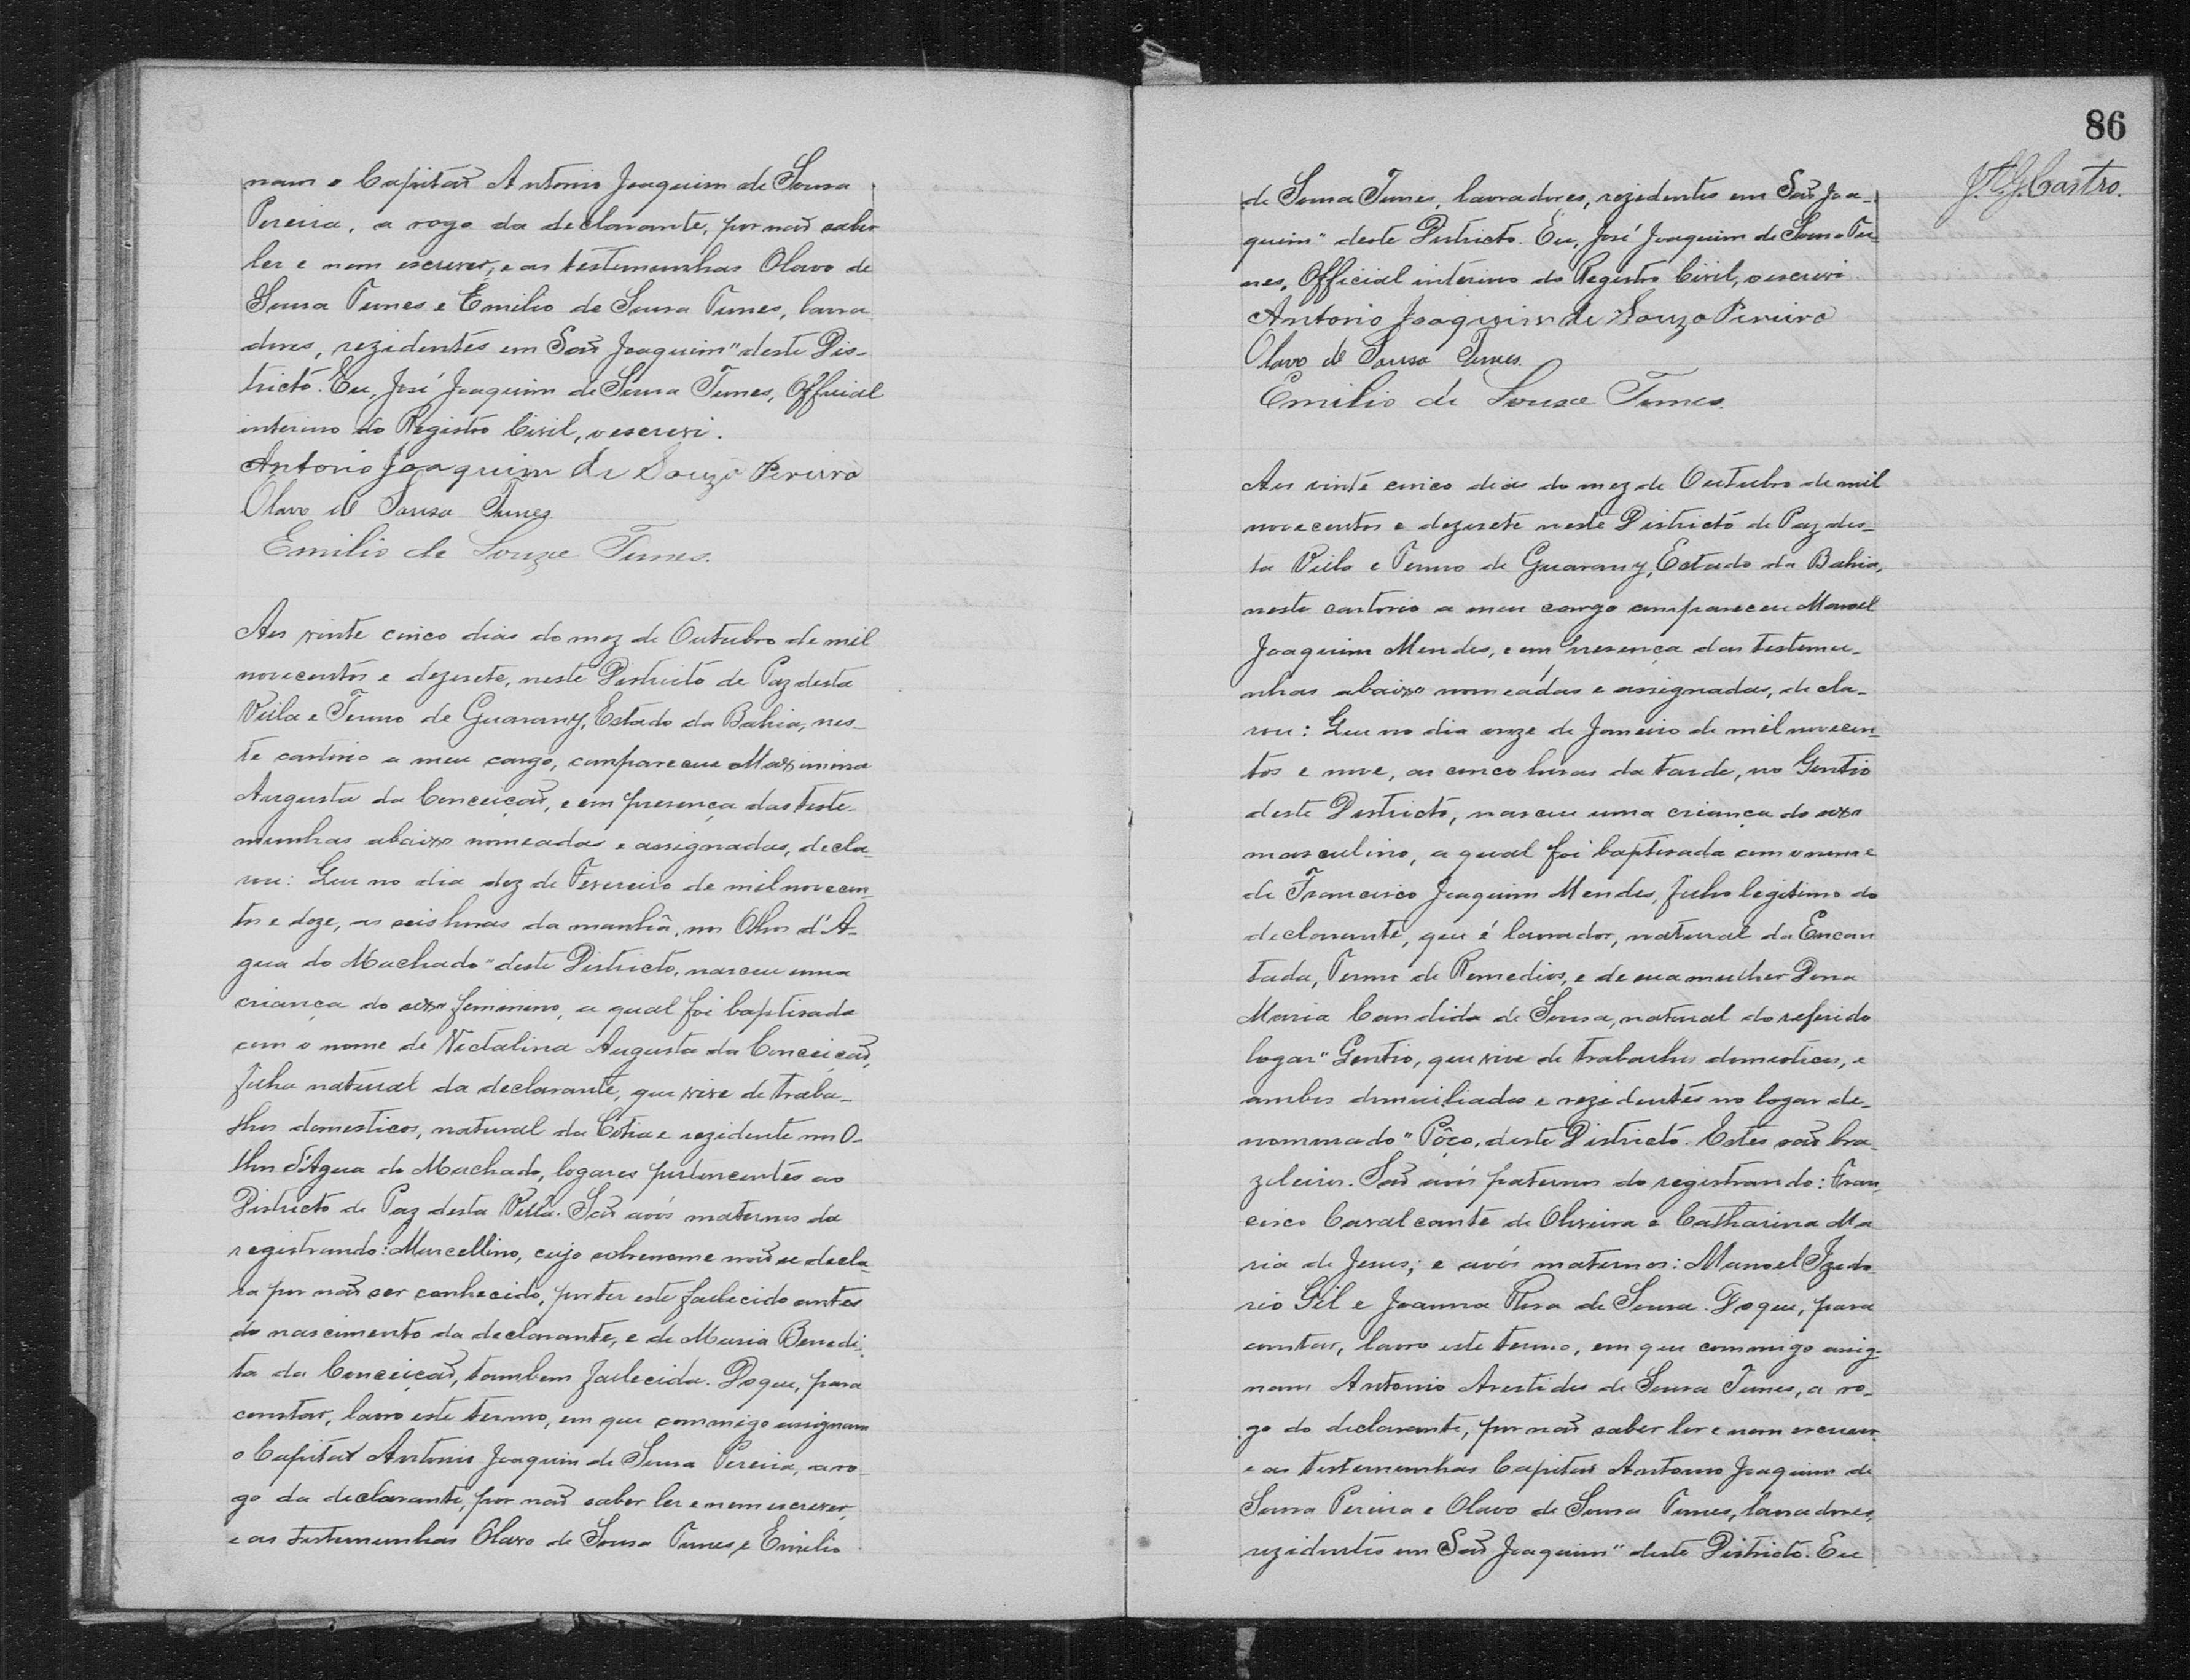 nam o Capitaõ Antonio Joaquim de Sousa
Pereira, a rogo da declarante, por naõ saber
ler e nem escrever, e as testemunhas Olavo de
Sousa Tunes e Emilio de Sousa Tunes, lavra
dores, rezidentes em Saõ Joaquim" deste Dis-
tricto. Eu, José Joaquim de Sousa Tunes, Official
interino do Registro Civil, o escrevi.
Antonio Joaquim de Souza Pereira
Olavo de Sousa Tunes
Emilio de Souza Tunes.
Aos vinte cinco dias do mez de Outubro de mil
novecentos e dezesete, neste Districto de Paz desta
Villa e Termo de Guarany, Estado da Bahia, nes-
te cartorio a meu cargo, compareceu Maximina
Augusta da Conceiçaõ, e em presença das teste-
munhas abaixo nomeadas e assignadas, decla-
rou: Que no dia dez de Fevereiro de mil novecen-
tos e doze, as seis horas da manhã, no Olhos d'A-
gua do Machado" deste Districto, nasceu uma
criança do sexo feminino, a qual foi baptisada
com o nome de Nectalina Augusta da Conceiçaõ,
filha natural da declarante, que vive de traba-
lhos domesticos, natural da Cotia e rezidente no O-
lho d'Agua do Machado, logares pertencentes ao
Districto de Paz desta Villa. Saõ avós maternos da
registrando: Marcellino, cujo sobrenome naõ se decla-
ra por naõ ser conhecido, por ter este fallecido antes
do nascimento da declarante, e de Maria Benedi-
ta da Conceiçaõ, tambem fallecida. Do que, para
constar, lavro este termo, em que commigo assignam
o Capitaõ Antonio Joaquim de Sousa Pereira, a ro-
go da declarante, por naõ saber ler e nem escrever,
e as testemunhas Olavo de Sousa Tunes, e Emilio
86
J. A. G. Castro.
de Sousa Tunes, lavradores, rezidentes em Saõ Joa-
quim" deste Districto. Eu, José Joaquim de Sousa Tu-
nes, Official interino do Registro Civil, o escrevi
Antonio Joaquim de Souza Pereira
Olavo de Sousa Tunes.
Emilio de Souza Tunes.
Aos vinte cinco dias do mez de Outubro de mil
novecentos e dezesete neste Districto de Paz des-
ta Villa e Termo de Guarany, Estado da Bahia,
neste cartorio a meu cargo compareceu Manoel
Joaquim Mendes, e em presença das testemu-
nhas abaixo nomeadas e assignadas, decla-
rou: Que no dia onze de Janeiro de mil novecen-
tos e nove, as cinco horas da tarde, no Gentio
deste Districto, nasceu uma criança do sexo
masculino, a qual foi baptisada com o nome
de Francisco Joaquim Mendes, filho legitimo do
declarante, que é lavrador, natural da Encan
tada, Termo de Remedios, e de sua mulher Dona
Maria Candida de Sousa, natural do referido
logar" Gentio, que vive de trabalhos domesticos, e
ambos domiciliados e rezidentes no logar de-
nominado" Pôço, deste Districto. Estes saõ bra-
zileiros. Saõ avós paternos do registrando: Fran-
cisco Cavalcante de Oliveira e Catharina Ma
ria de Jesus; e avós maternos: Manoel Izedo-
rio Gil e Joanna Rosa de Sousa. Do que, para
constar, lavro este termo, em que commigo assig-
nam Antonio Arestides de Sousa Tunes, a ro-
go do declarante, por naõ saber ler e nem escrever
e as testemunhas Capitaõ Antonio Joaquim de
Sousa Pereira e Olavo de Sousa Tunes, lavradores,
rezidentes em Saõ Joaquim" deste Districto. Eu